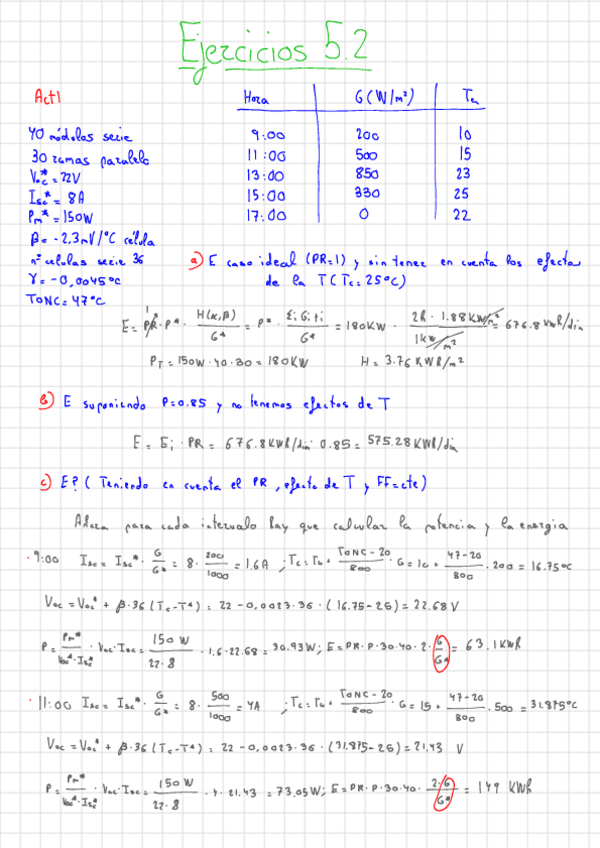 Ejercicios 5.2
Act1
Hora G(W/m²) Ta
9:00 200 10
11:00 500 15
13:00 850 23
15:00 330 25
17:00 0 22
40 módulos serie
30 ramas paralelo
Voc* = 22V
Isc* = 8A
Pm* = 150W
β = -2,3mV/°C célula
nº celulas serie 36
γ = -0,0045°C
TONC = 47°C
a) E caso ideal (PR=1) y sin tener en cuenta los efectos
de la T (Tc = 25°C)
E = PR · P* · H(α,β)/G* = P* · Σi Gi ti/G* = 180KW · 2h · 1.88 KW/m²/1kW/m² = 676.8 kWh/dia
1
PT = 150W · 40 · 30 = 180KW H = 3.76 KWh/m²
b) E suponiendo P=0.85 y no tenemos efectos de T
E = Ei · PR = 676.8 KWh/dia · 0.85 = 575.28 KWh/dia
c) E? (Teniendo en cuenta el PR, efecto de T y FF=cte)
Ahora para cada intervalo hay que calcular la potencia y la energia
· 9:00 Isc = Isc* · G/G* = 8 · 200/1000 = 1.6A ; Tc = Ta + TONC-20/800 · G = 10 + 47-20/800 · 200 = 16.75°C
Voc = Voc* + β·36 (Tc-T*) = 22 - 0,0023·36 · (16.75-25) = 22.68 V
P = Pm*/Voc*·Isc* · Voc·Isc = 150W/22·8 · 1.6·22.68 = 30.93W; E = PR·P·30·40·2·G/G* = 63.1KWh
· 11:00 Isc = Isc* · G/G* = 8 · 500/1000 = 4A ; Tc = Ta + TONC-20/800 · G = 15 + 47-20/800 · 500 = 31.875°C
Voc = Voc* + β·36 (Tc-T*) = 22 - 0,0023·36 · (31.875-25) = 21.43 V
P = Pm*/Voc*·Isc* · Voc·Isc = 150W/22·8 · 4·21.43 = 73,05W; E = PR·P·30·40·2·G/G* = 149 KWh